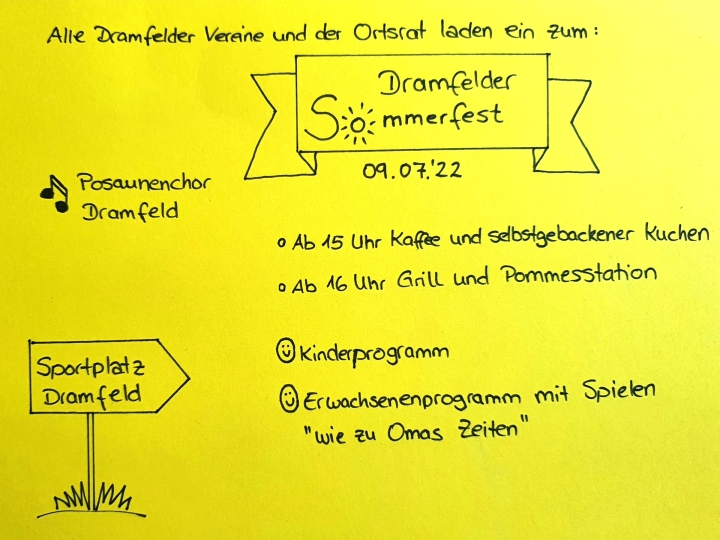 Alle Dramfelder Vereine und der Ortsrat laden ein zum:
Dramfelder
Sommerfest
09.07.'22
Posaunenchor
Dramfeld
Ab 15 Uhr Kaffee und selbstgebackener Kuchen
Ab 16 Uhr Grill und Pommesstation
Sportplatz
Dramfeld
Kinderprogramm
Erwachsenenprogramm mit Spielen
"wie zu Omas Zeiten"